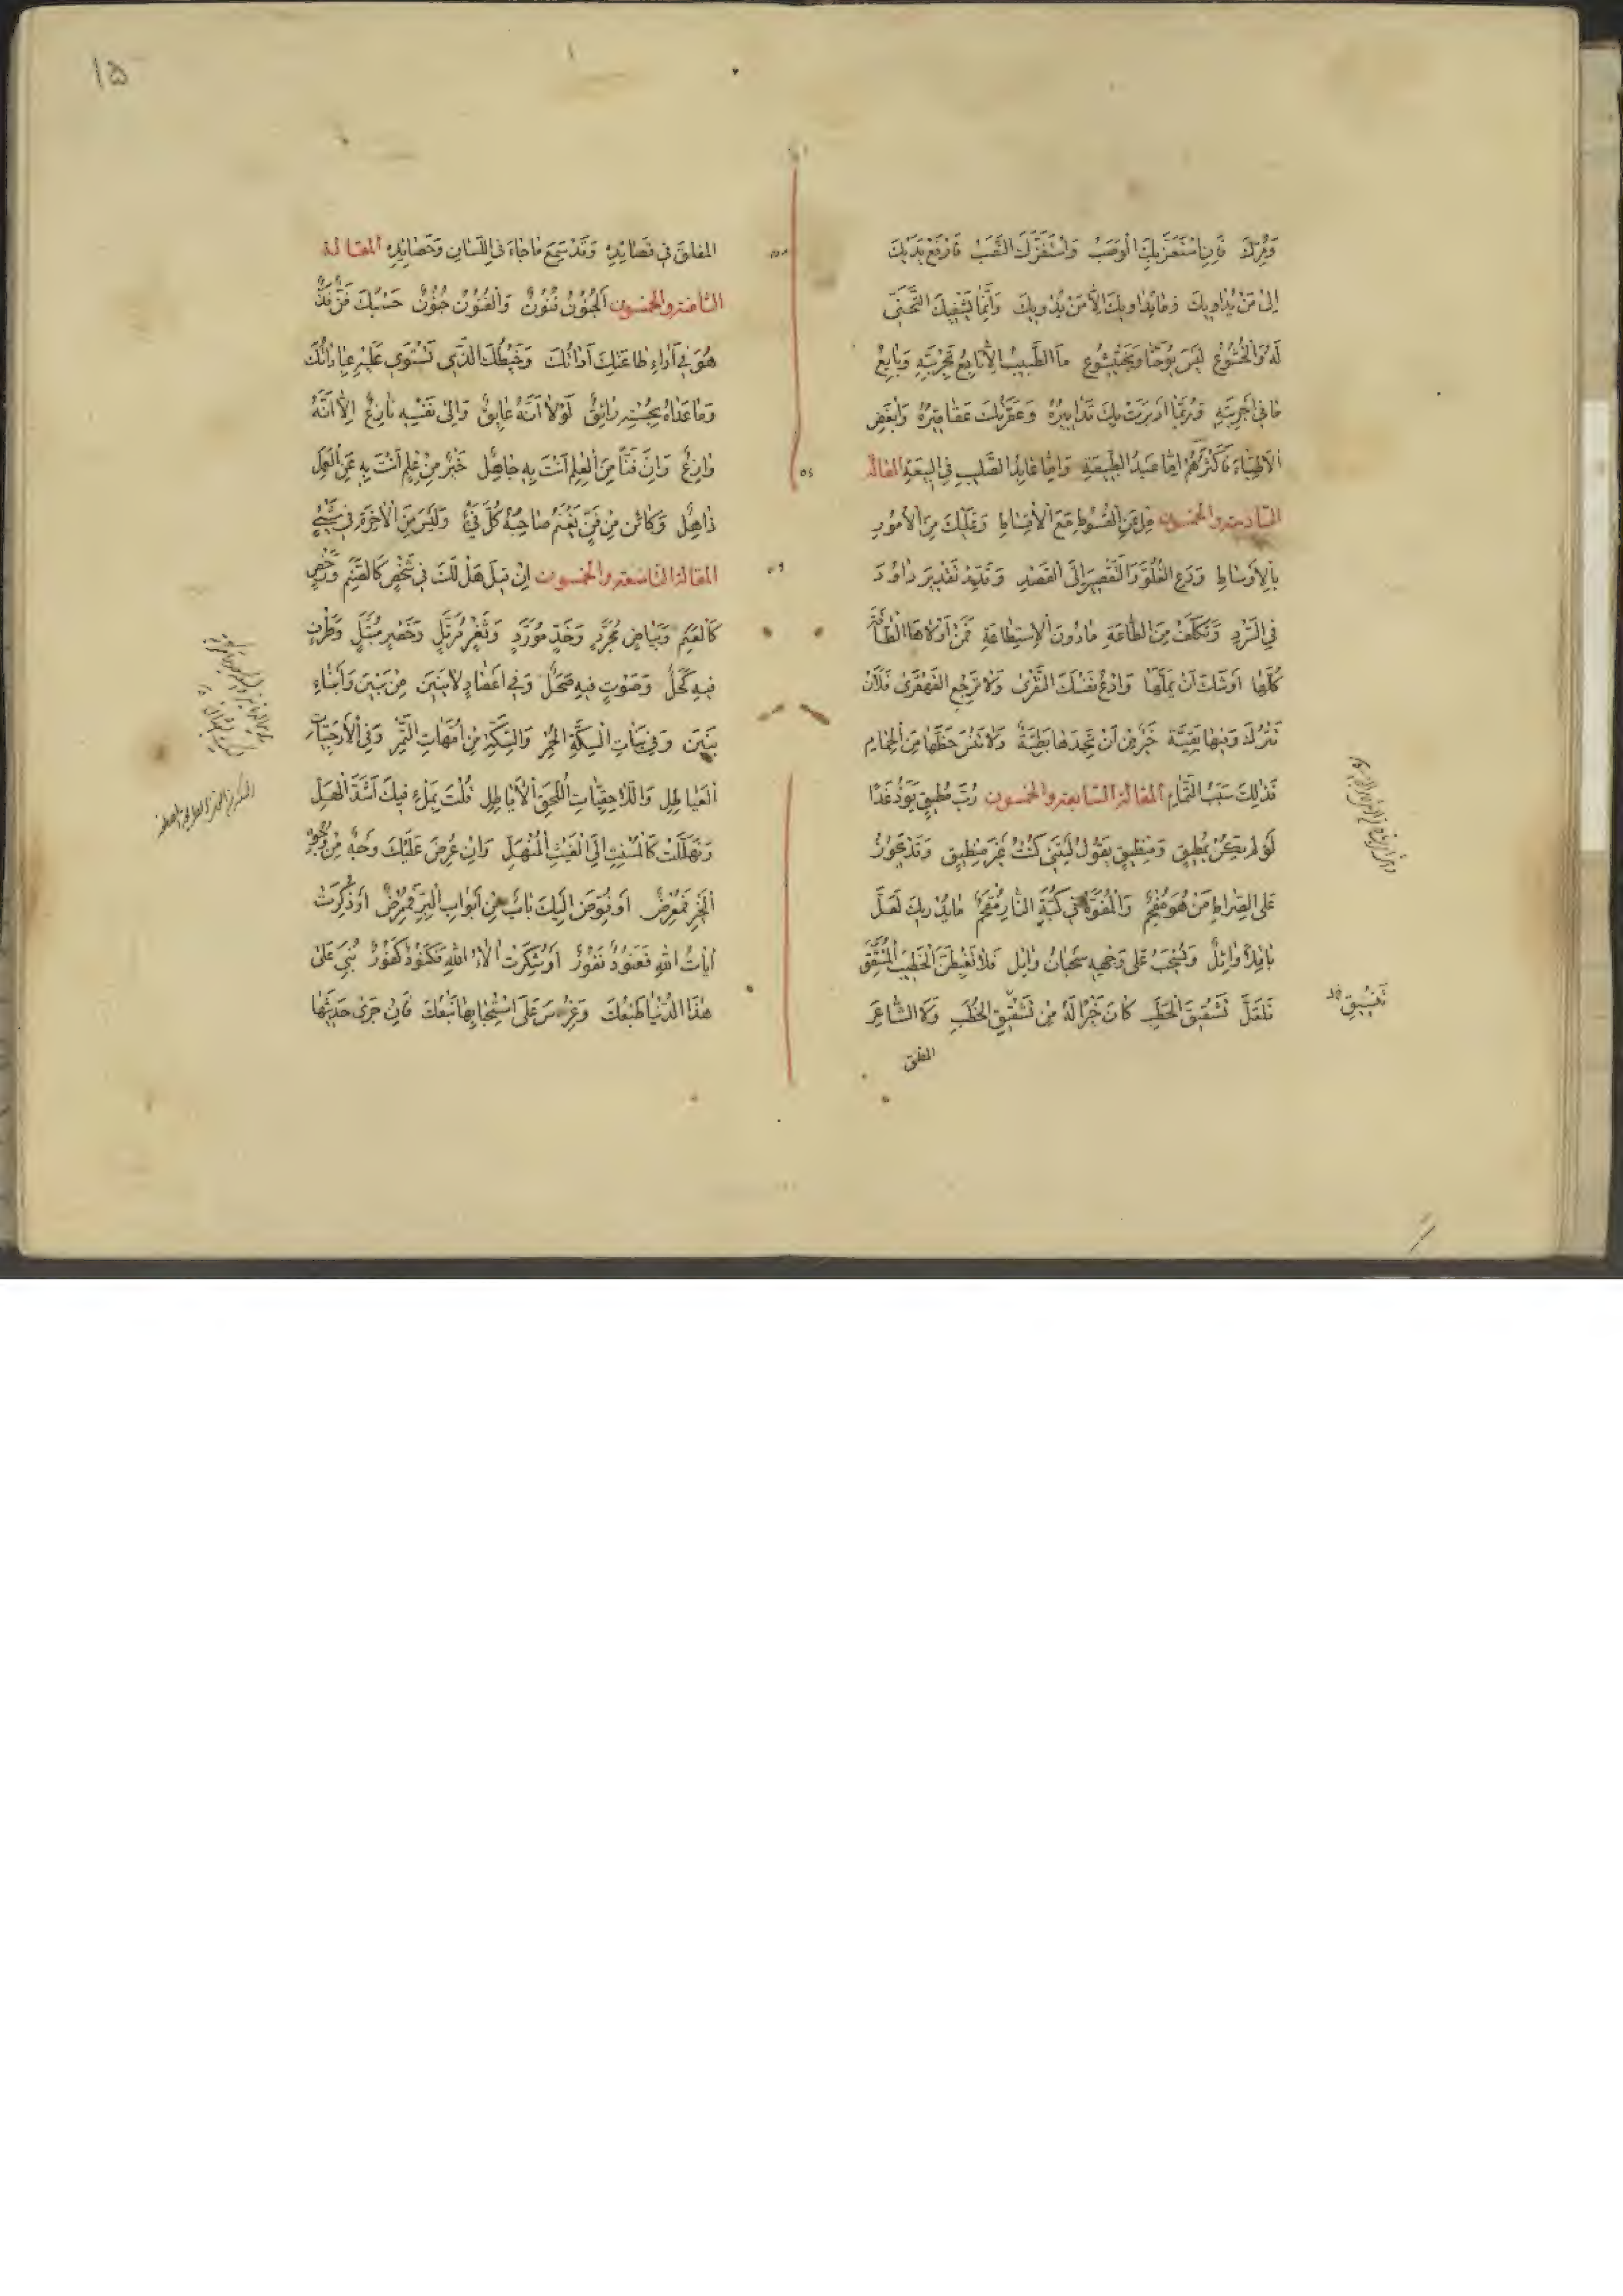 وَقِرَكَ فَإِنِ اسْتَعَزَّ بِكَ الْوَصَبُ وَاسْتَفَزَّكَ النَّصَبُ فَارْفَعْ يَدَيْكَ
إِلىٰ مَنْ يُدَاوِيكَ وَمَا يُدَاوِيكَ إِلَّا مَنْ يُدْوِيكَ وَإِنَّمَا يَشْفِيكَ
لَهُ وَالْخُشُوعُ لَيْسَ يُوحَنَّا وَبَخْتَيَشُوعُ مَا الطَّبِيبُ إِلَّا تَابِعُ تَجْرِبَتِهِ وَبَايِعُ
مَا فِي أَجْرِبَتِهِ وَرُبَّمَا أَدْبَرَتْ بِكَ تَدَابِيرُهُ وَعَقَرَتْكَ عَقَاقِيرُهُ وَأَبْغَضِ
الْأَطِبَّاءَ فَأَكْثَرُهُمْ إِمَّا عَبَدُ الطَّبِيعَةِ وَإِمَّا عَابِدُ الصَّلِيبِ فِي الْبِيعَةِ المقالة
السادسة والخمسون مِلْ عَنِ الْقُسُوطِ مَعَ الْأَقْسَاطِ وَعَلَيْكَ مِنَ الْأُمُورِ
بِالْأَوْسَاطِ وَدَعِ الْغُلُوَّ وَالتَّقْصِيرَ إِلَى الْقَصْدِ وَقَدِّرْ تَقْدِيرَ دَاوُدَ
فِي السَّرْدِ وَتَكَلَّفْ مِنَ الطَّاعَةِ مَا دُونَ الْإِسْتِطَاعَةِ فَمَنْ أَوْلَاهَا الطَّاقَةَ
كُلَّهَا أَوْشَكَ أَنْ يَمَلَّهَا وَادْعُ نَفْسَكَ النَّقَرَىٰ وَلَا تَرْجِعِ الْقَهْقَرَىٰ فَلَأَنْ
تَتْرُكَ وَفِيهَا بَقِيَّةٌ خَيْرٌ مِنْ أَنْ تَجِدَهَا بَطِيَّةً وَلَا تَنْسَ حَظَّهَا مِنَ الْجِمَامِ
فَذٰلِكَ سَبَبُ التَّمَامِ المقالة السابعة والخمسون رُبَّ مُطِيقٍ يَوَدُّ غَدًا
لَوْ لَمْ يَكُنْ بِمُطِيقٍ وَمِنْطِيقٍ يَقُولُ لَيْتَنِي كُنْتُ غَيْرَ مِنْطِيقٍ وَقَدْ يَجُوزُ
عَلَى الصِّرَاطِ مَنْ هُوَ مُفْحَمٌ وَالْمُفَوَّهُ فِي كُبَّةِ النَّارِ مُقْحَمٌ مَا يُدْرِيكَ لَعَلَّ
بَاقِلًا وَائِلٌ وَيُسْحَبُ عَلَى وَجْهِهِ سَحْبَانُ وَائِلٍ فَلَا تَغْبِطَنَّ الْخَطِيبَ الْمُشَقِّقَ
فَلَعَلَّ تَشْقِيقَ الْحَطَبِ كَانَ خَيْرًا لَهُ مِنْ تَشْقِيقِ الْخُطَبِ وَلَا الشَّاعِرَ
المفلق
المفلق فِي قَصَايِدِهِ وَقَدْ سَمِعَ مَا جَاءَ فِي اللِّسَانِ وَحَصَايِدِهِ المقالة
الثامنة والخمسون الْجُنُونُ فُنُونٌ وَالْفُنُونُ جُنُونٌ حَسْبُكَ فَنٌّ فَذٌّ
هُوَ فِي أَدَاءِ طَاعَتِكَ أَدَاتُكَ وَخَيْطُكَ الَّذِي تَسْتَوِي عَلَيْهِ عِبَادَاتُكَ
وَمَا عَدَاهُ بِحُسْنِهِ رَائِقٌ لَوْلَا أَنَّهُ عَائِقٌ وَإِلىٰ نَفْسِهِ نَازِعٌ إِلَّا أَنَّهُ
وَازِعٌ وَإِنَّ فَنًّا مِنَ الْعِلْمِ أَنْتَ بِهِ جَاهِلٌ خَيْرٌ مِنْ عِلْمٍ أَنْتَ بِهِ عَنِ الْعَمَلِ
ذَاهِلٌ وَكَائِنْ مِنْ فَنٍّ يَغْنَمُ صَاحِبُهُ كُلَّ فَيْءٍ وَلَيْسَ مِنَ الْآخِرَةِ فِي شَيْءٍ
المقالة التاسعة والخمسون إِنْ قِيلَ هَلْ لَكَ فِي شَخْصٍ كَالصَّنَمِ وَرَخْصٍ
كَالْعَنَمِ وَبَيَاضٍ مُجَرَّدٍ وَخَدٍّ مُوَرَّدٍ وَثَغْرٍ مُرَتَّلٍ وَخَصْرٍ مُبَتَّلٍ وَطَرْفٍ
فِيهِ كَحَلٌ وَصَوْتٍ فِيهِ صَحَلٌ وَفِي أَعْضَادٍ لَابَنِينَ مِنْ بَنِينَ وَأَبْنَاءِ
بَنِينَ وَفِي بَنَاتِ السِّكَّةِ الْحُمْرِ وَالسِّكَّةِ مِنْ أُمَّهَاتِ التَّمْرِ وَفِي الْأَرْحَبِيَّاتِ
الْعَيَاطِلِ وَاللَّاحِقِيَّاتِ اللُّحَّقِ الْأَيَاطِلِ قُلْتَ بِمَلْءِ فِيكَ أَشَدَّ الْهَلِّ
وَتَهَلَّلْتَ كَالْمُسْنِتِ إِلَى الْغَيْثِ الْمُنْهَلِّ وَإِنْ عُرِضَ عَلَيْكَ وَجْهٌ مِنْ وُجُوهِ
الْخَيْرِ فَمُعْرِضٌ أَوْ فُوِّضَ إِلَيْكَ بَابٌ مِنْ أَبْوَابِ الْبِرِّ فَمُمَرِّضٌ أَوْ ذُكِرَتْ
آيَاتُ اللهِ فَعَنُودٌ نَفُورٌ أَوْ شُكِرَتْ آلَاءُ اللهِ فَكَنُودٌ كَفُورٌ بُنِيَ عَلىٰ
هٰذَا الدُّنْيَا طَبْعُكَ وَغُرِسَ عَلَى اسْتِحْبَابِهَا نَبْعُكَ فَإِنْ جَرىٰ حَدِيثُهَا